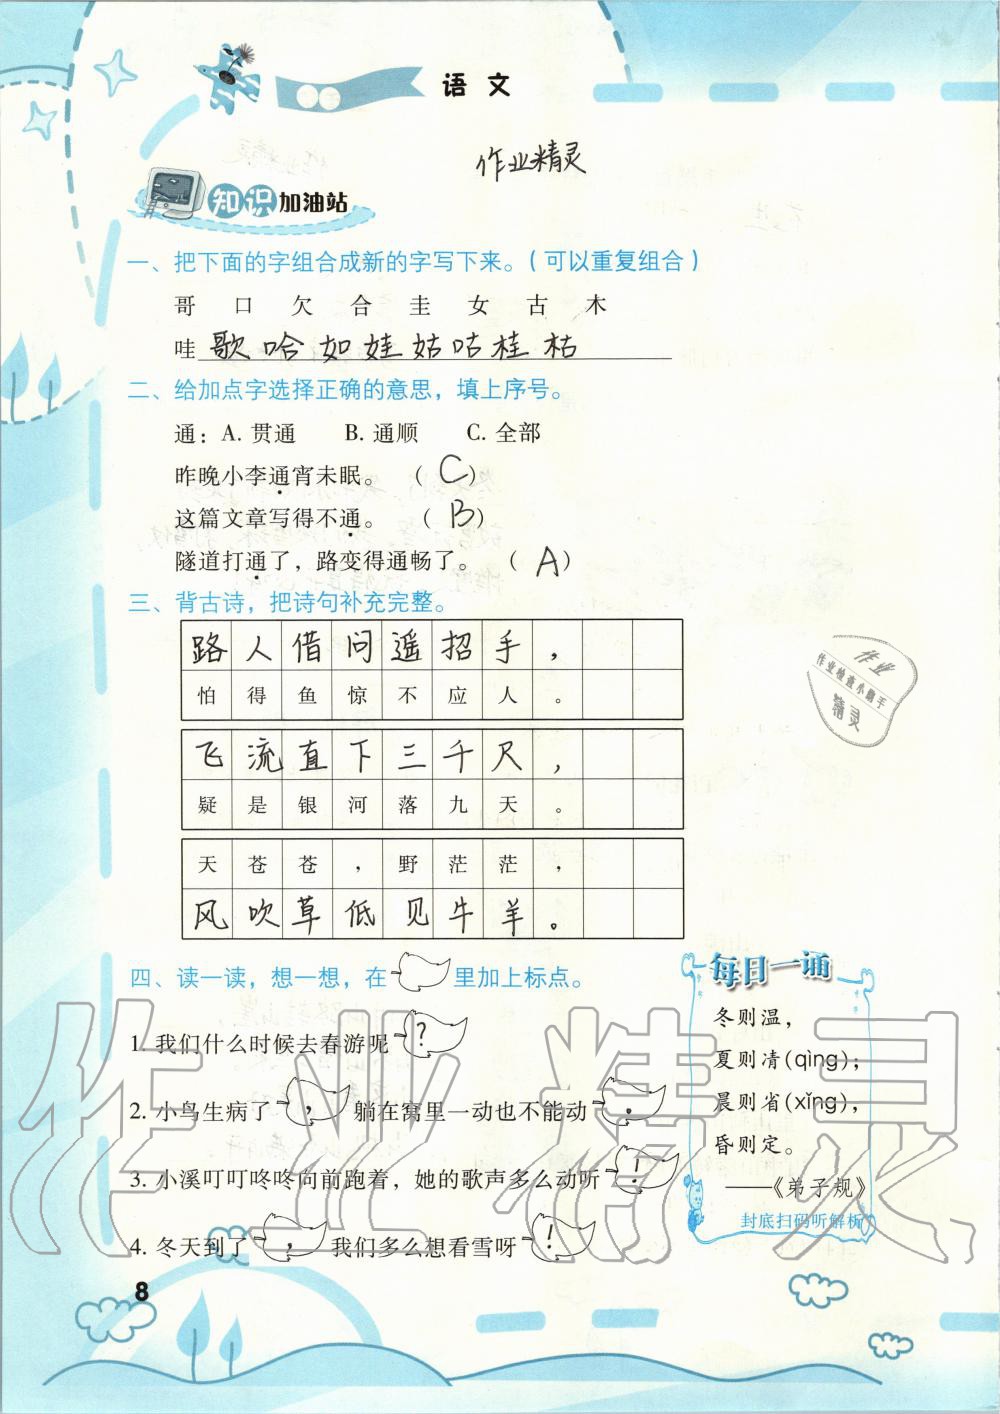 语 文
作业精灵
知识加油站
一、把下面的字组合成新的字写下来。（可以重复组合）
哥 口 欠 合 圭 女 古 木
哇 歌 哈 如 娃 姑 咕 桂 枯
二、给加点字选择正确的意思，填上序号。
通：A. 贯通 B. 通顺 C. 全部
昨晚小李通宵未眠。 （ C ）
这篇文章写得不通。 （ B ）
隧道打通了，路变得通畅了。 （ A ）
三、背古诗，把诗句补充完整。
路人借问遥招手，
怕得鱼惊不应人。
飞流直下三千尺，
疑是银河落九天。
天苍苍，野茫茫，
风吹草低见牛羊。
作业
作业检查小助手
精灵
四、读一读，想一想，在 里加上标点。
1. 我们什么时候去春游呢？
2. 小鸟生病了，躺在窝里一动也不能动。
3. 小溪叮叮咚咚向前跑着，她的歌声多么动听！
4. 冬天到了，我们多么想看雪呀！
每日一诵
冬则温，
夏则凊(qìng)；
晨则省(xǐng)，
昏则定。
——《弟子规》
封底扫码听解析
作业精灵
8